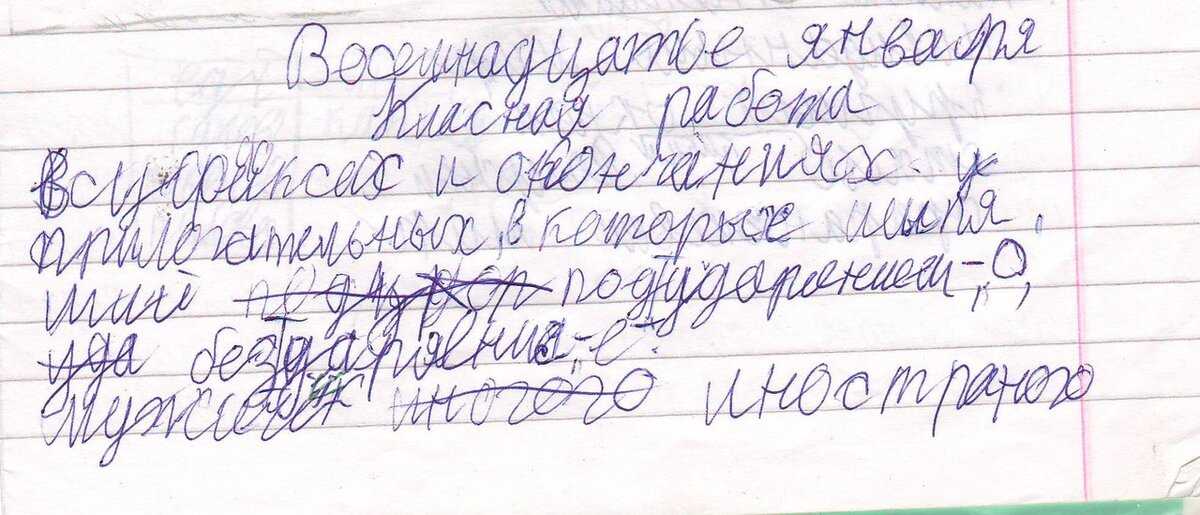 Восемнадцатое января
Класная работа
В суфиксах и окончаниях у
прилогательных, в которых шыпя
шие подударением-О,
уда безударения-е.
иногого иностраного